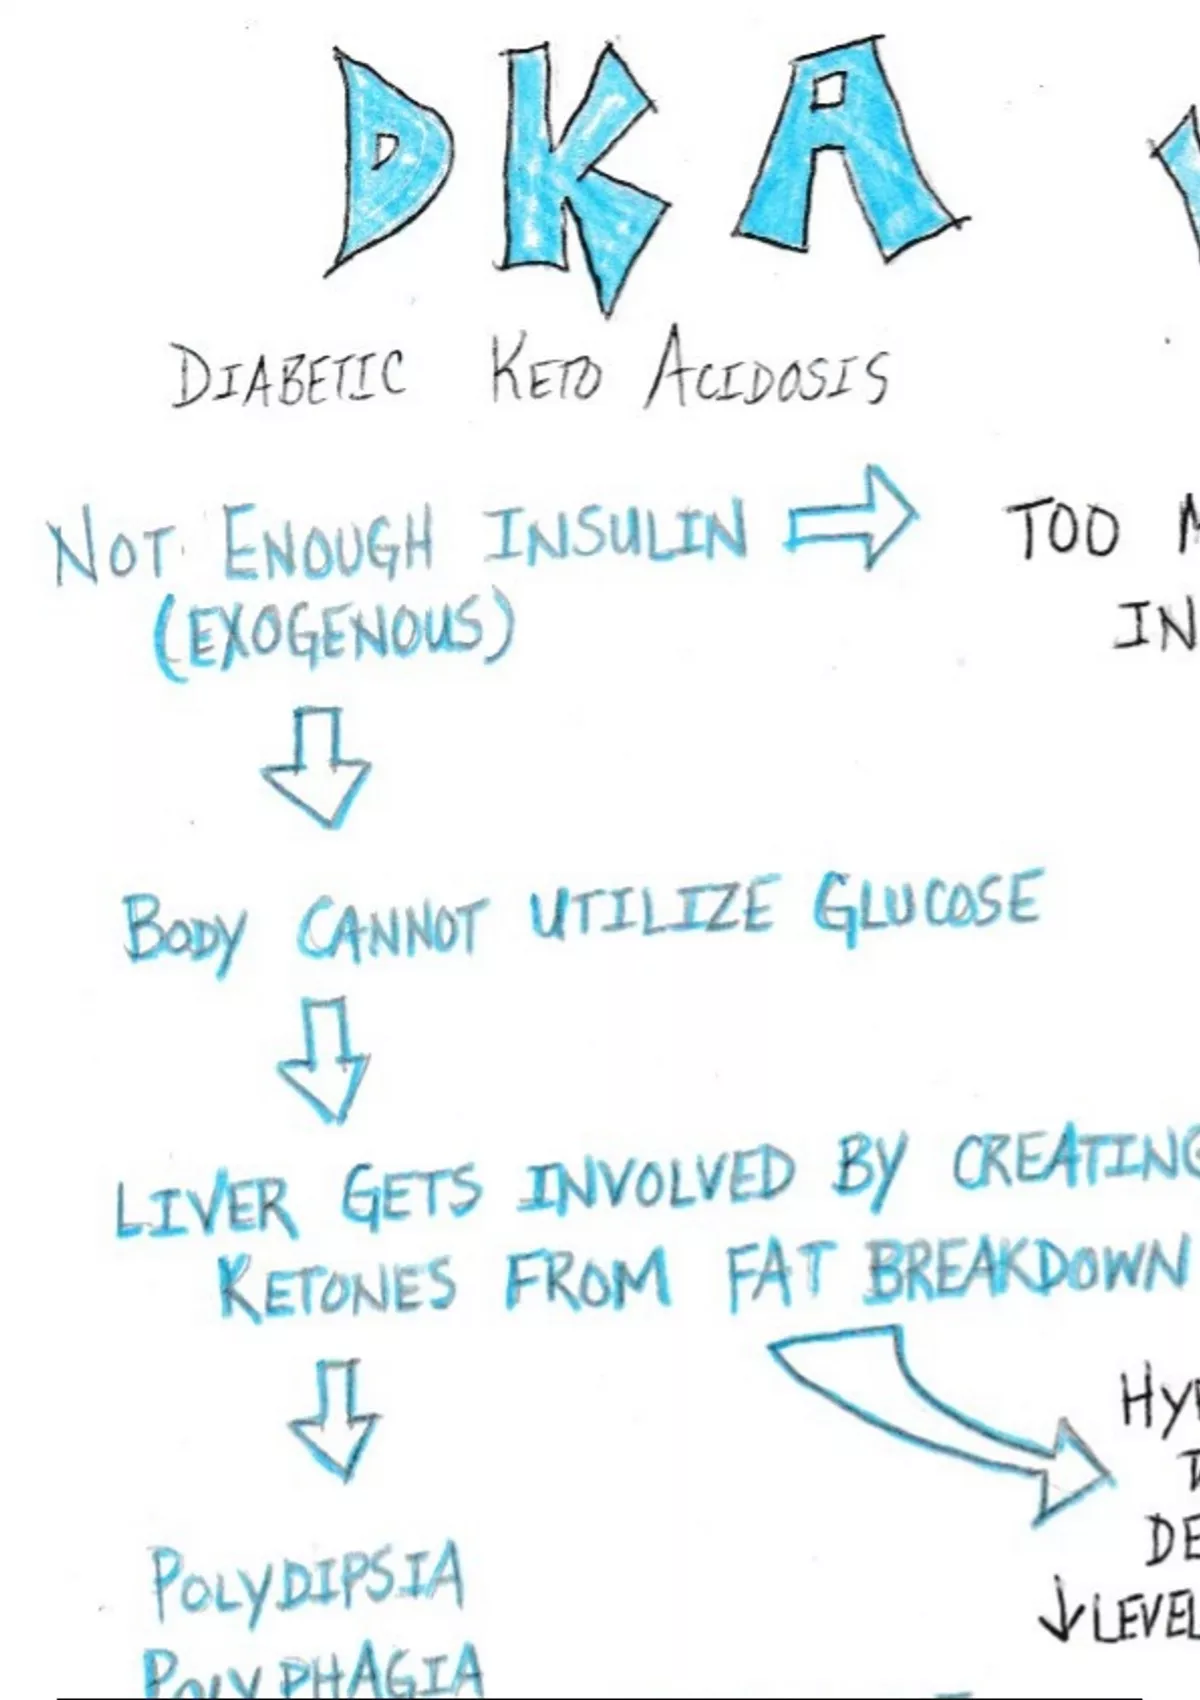 DKA
DIABETIC KETO ACIDOSIS
NOT ENOUGH INSULIN
(EXOGENOUS)
TOO
IN
BODY CANNOT UTILIZE GLUCOSE
LIVER GETS INVOLVED BY CREATING
KETONES FROM FAT BREAKDOWN
DE
↓LEVEL
POLYDIPSIA
POLYPHAGIA